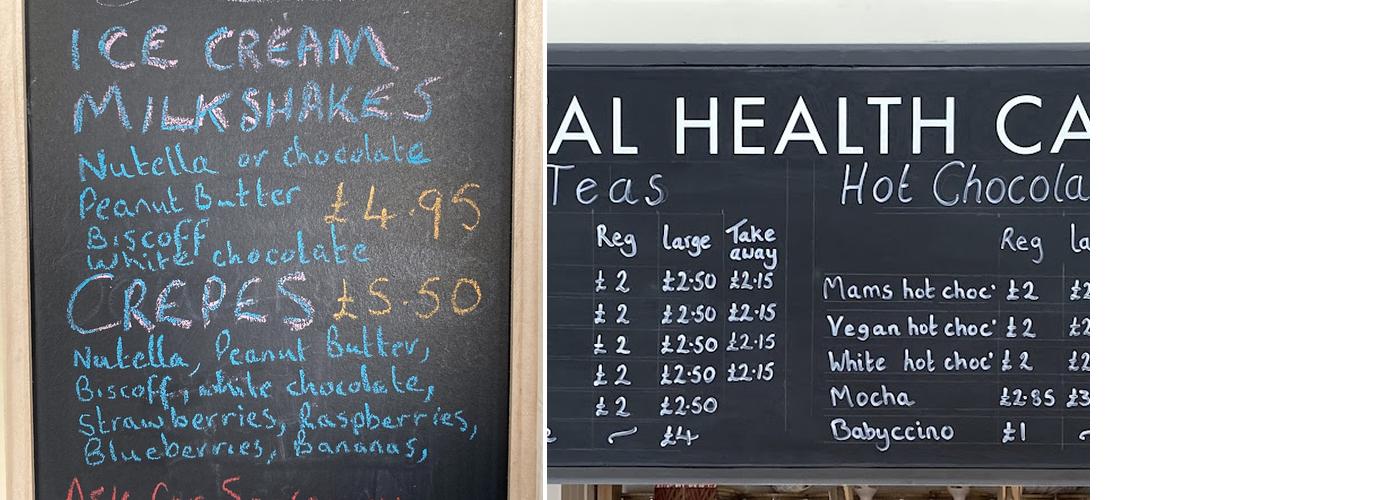 ICE CREAM
MILKSHAKES
Nutella or chocolate
Peanut Butter £4.95
Biscoff
White chocolate
CREPES £5.50
Nutella, Peanut Butter,
Biscoff, white chocolate,
Strawberries, Raspberries,
Blueberries, Bananas,
AL HEALTH CA
Teas
Reg large Take away
£2 £2.50 £2.15
£2 £2.50 £2.15
£2 £2.50 £2.15
£2 £2.50 £2.15
£2 £2.50
~ £4
Hot Chocola
Reg la
Mams hot choc' £2 £2
Vegan hot choc' £2 £2
White hot choc' £2 £2
Mocha £2.85 £3
Babyccino £1 ~